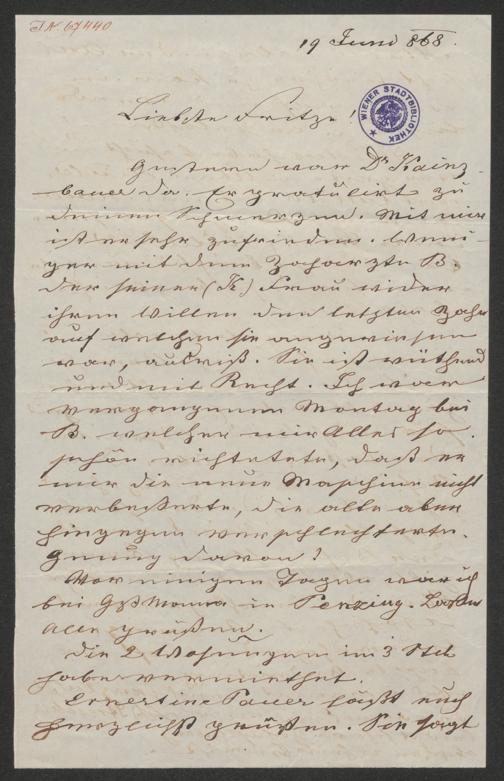 I.N. 67440
19 Juni 868.
WIENER STADTBIBLIOTHEK
Liebste Fritze!
Gestern war Dr Kainz-
bauer da. Er gratulirt zu
deinen Schmerzen. Mit mir
ist er sehr zufrieden. Weni-
ger mit dem Zaharzte B.
der seiner (K.) Frau wider
ihren Willen den letzten Zahn
auf welchen sie angewiesen
war, ausriß. Sie ist wüthend
und mit Recht. Ich war
vergangenen Montag bei
B. welcher mir Alles so
schön richtetete, daß er
mir die neue Maschine nicht
verbeßerte, die alte aber
hingegen verschlechterte.
Genung davon!
Vor einigen Tagen war ich
bei Gßmama in Penzing. Laßen
Alle grüßen.
Die 2 Wohungen im 3 Stck
habe vermiethet.
Ernestine Pauer läßt euch
herzlichst grüßen. Sie sagt